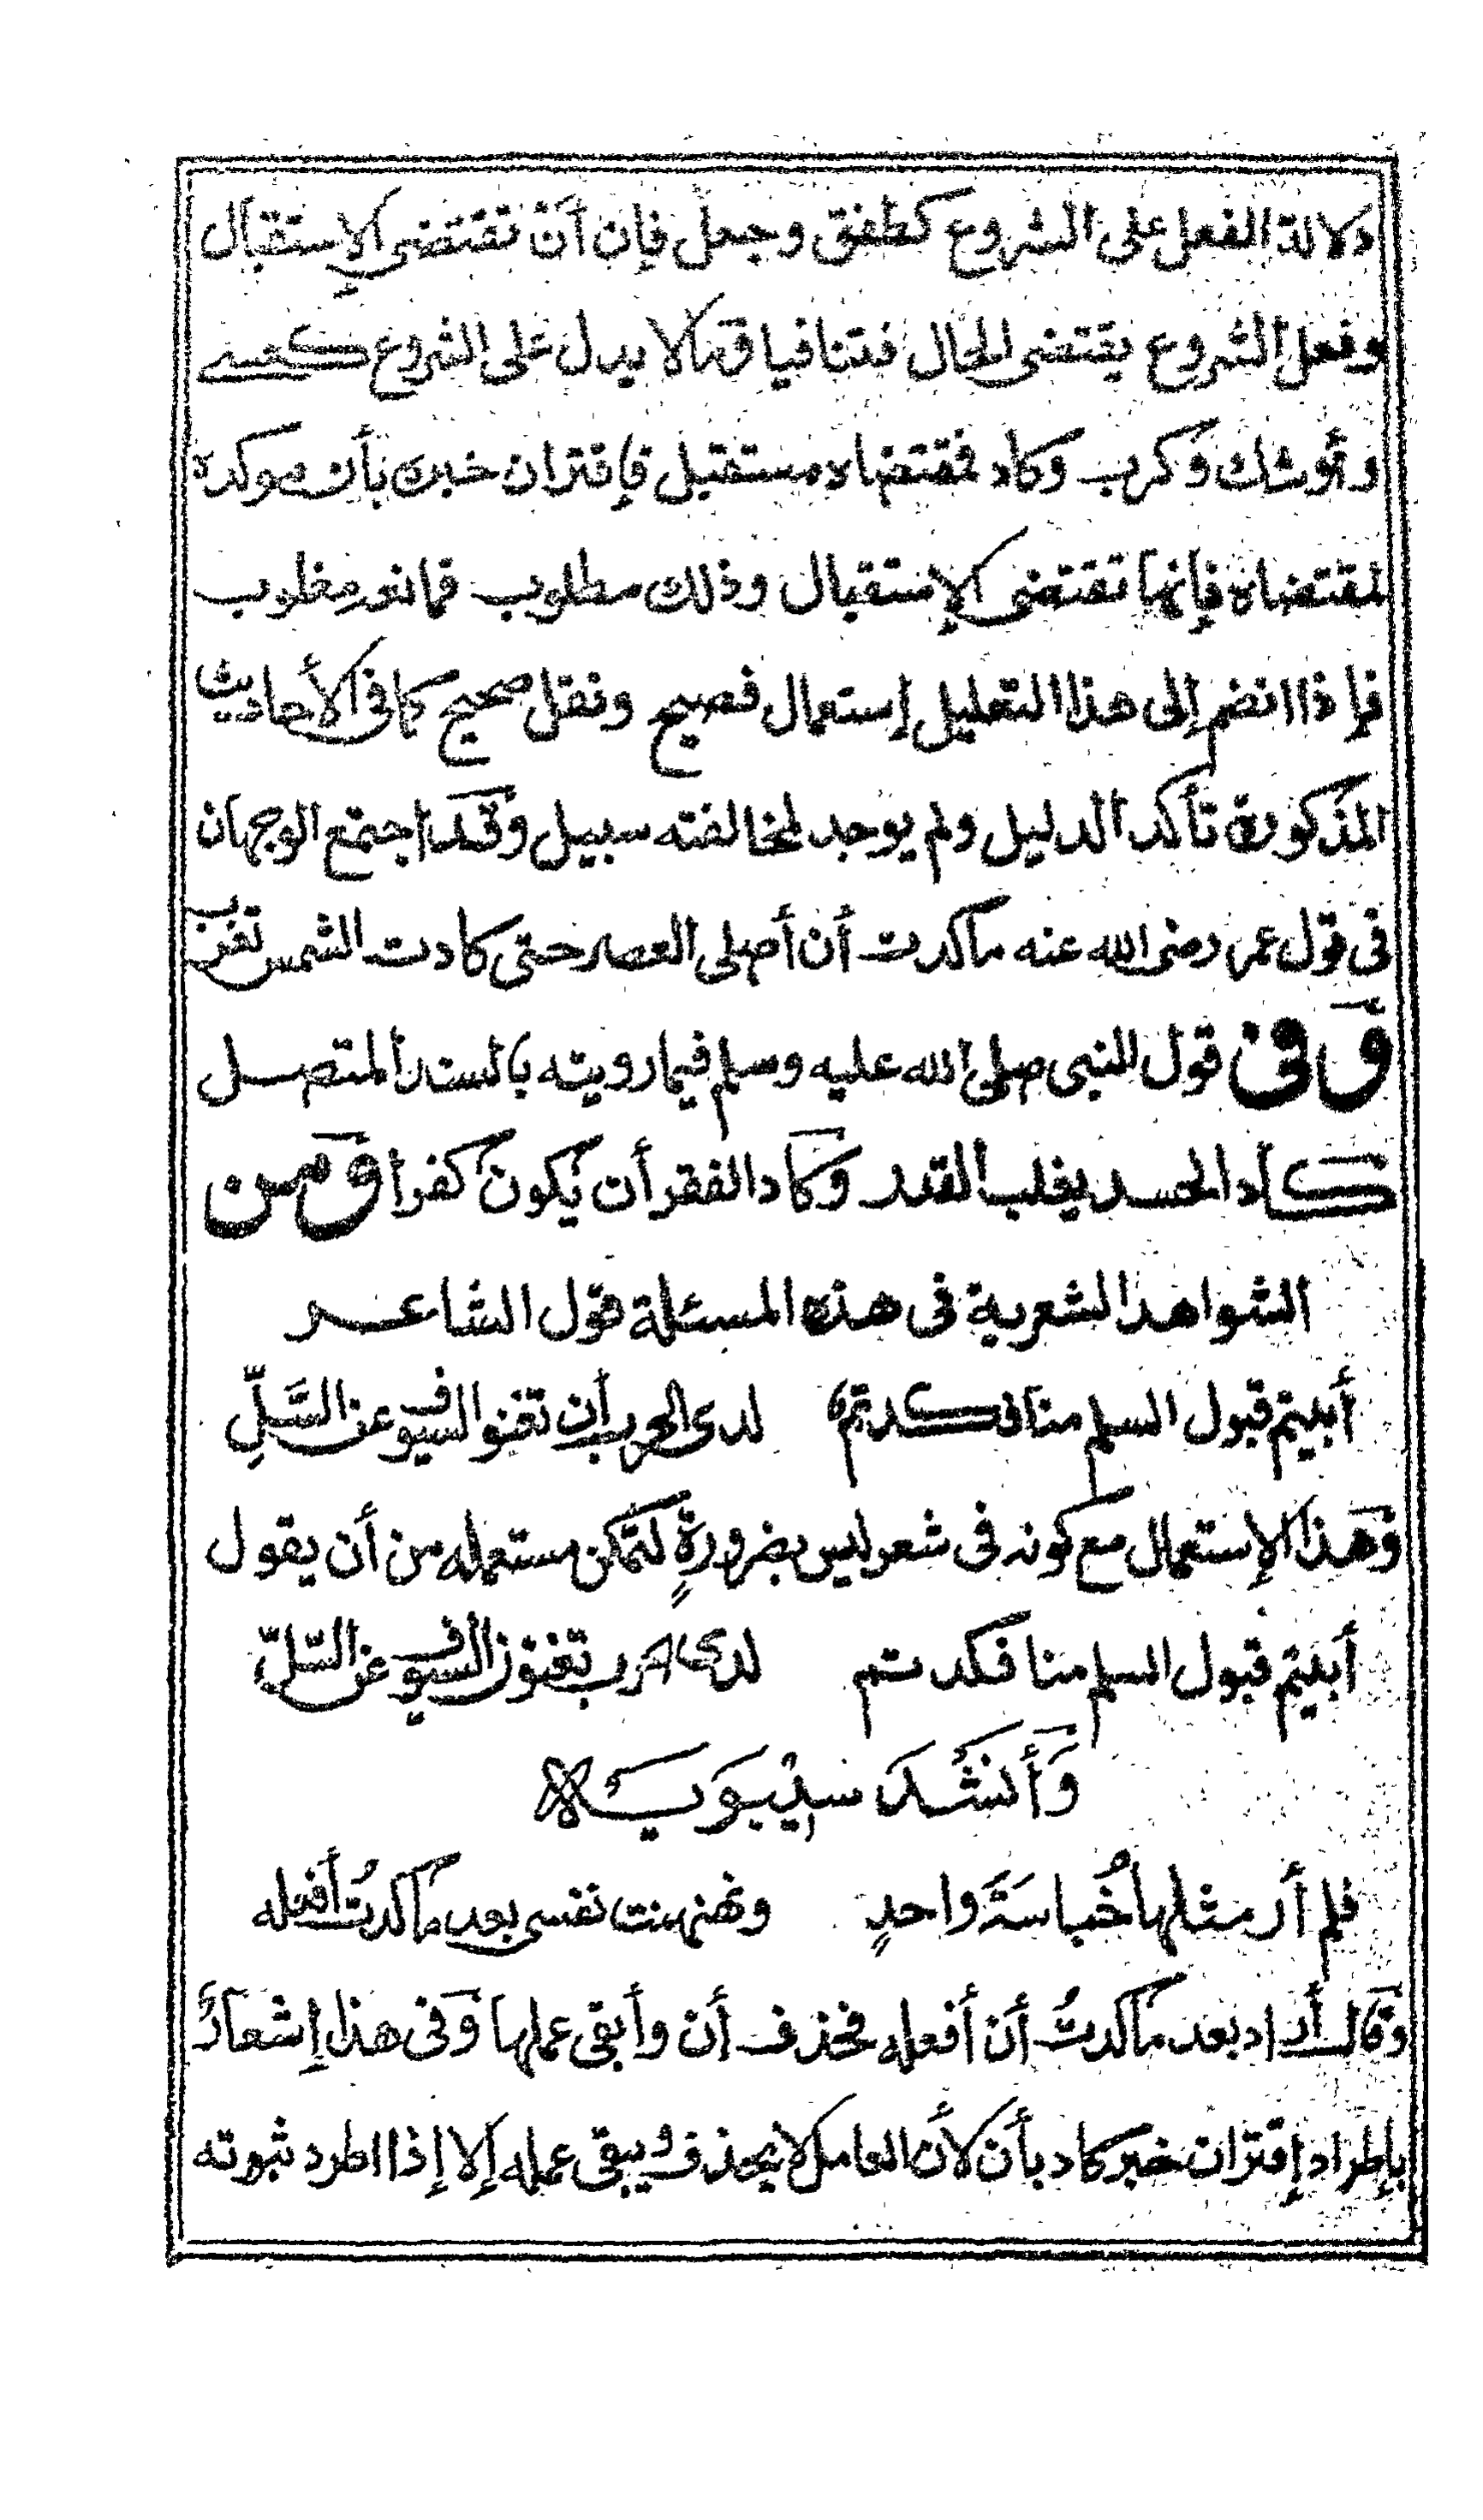 دلالة الفعل على الشروع كطفق وجعل فإن أن تقتضي الإستقبال
وفعل الشروع يقتضى الحال فتنافيا ومالا يدل على الشروع كعسى
وأوشك وكرب وكاد فمقتضاه مستقبل فإقتران خبره بأن موكدة
لمقتضاه فإنها تقتضى الإستقبال وذلك مطلوب فمانعه مغلوب
فإذا انضم إلى هذا التعليل إستعمال فصيح ونقل صحيح كما في الأحاديث
المذكورة تأكد الدليل ولم يوجد لمخالفته سبيل وقد اجتمع الوجهان
في قول عمر رضى الله عنه ما كدت أن أصلى العصر حتى كادت الشمس تغرب
وفى قول النبى صلى الله عليه وسلم فيما رويته بالسند المتصل
كاد الحسد يغلب القدر وكاد الفقر أن يكون كفرا ومن
الشواهد الشعرية فى هذه المسئلة قول الشاعر
أبيتم قبول السلم منا فكدتم لدى الحرب أن تغنوا السيوف عن السَّلِّ
وهذا الإستعمال مع كونه فى شعر ليس بضرورةٍ لتمكن مستعمله من أن يقول
أبيتم قبول السلم منا فكدتم لدى الحرب تغنون السيوف عن السّلّ
وَأنشَدَ سِيْبَوَيْه
فلم أر مثلها خُباسَةَ واحدٍ ونهنهت نفسى بعد ما كدتُ أفعله
وقال أراد بعد ما كدتُ أن أفعله فحذف أن وأبقى عملها وفى هذا إشعارٌ
بإطراد إقتران خبر كاد بأن لأن العامل لا يحذف ويبقى عمله إلا إذا اطرد ثبوته